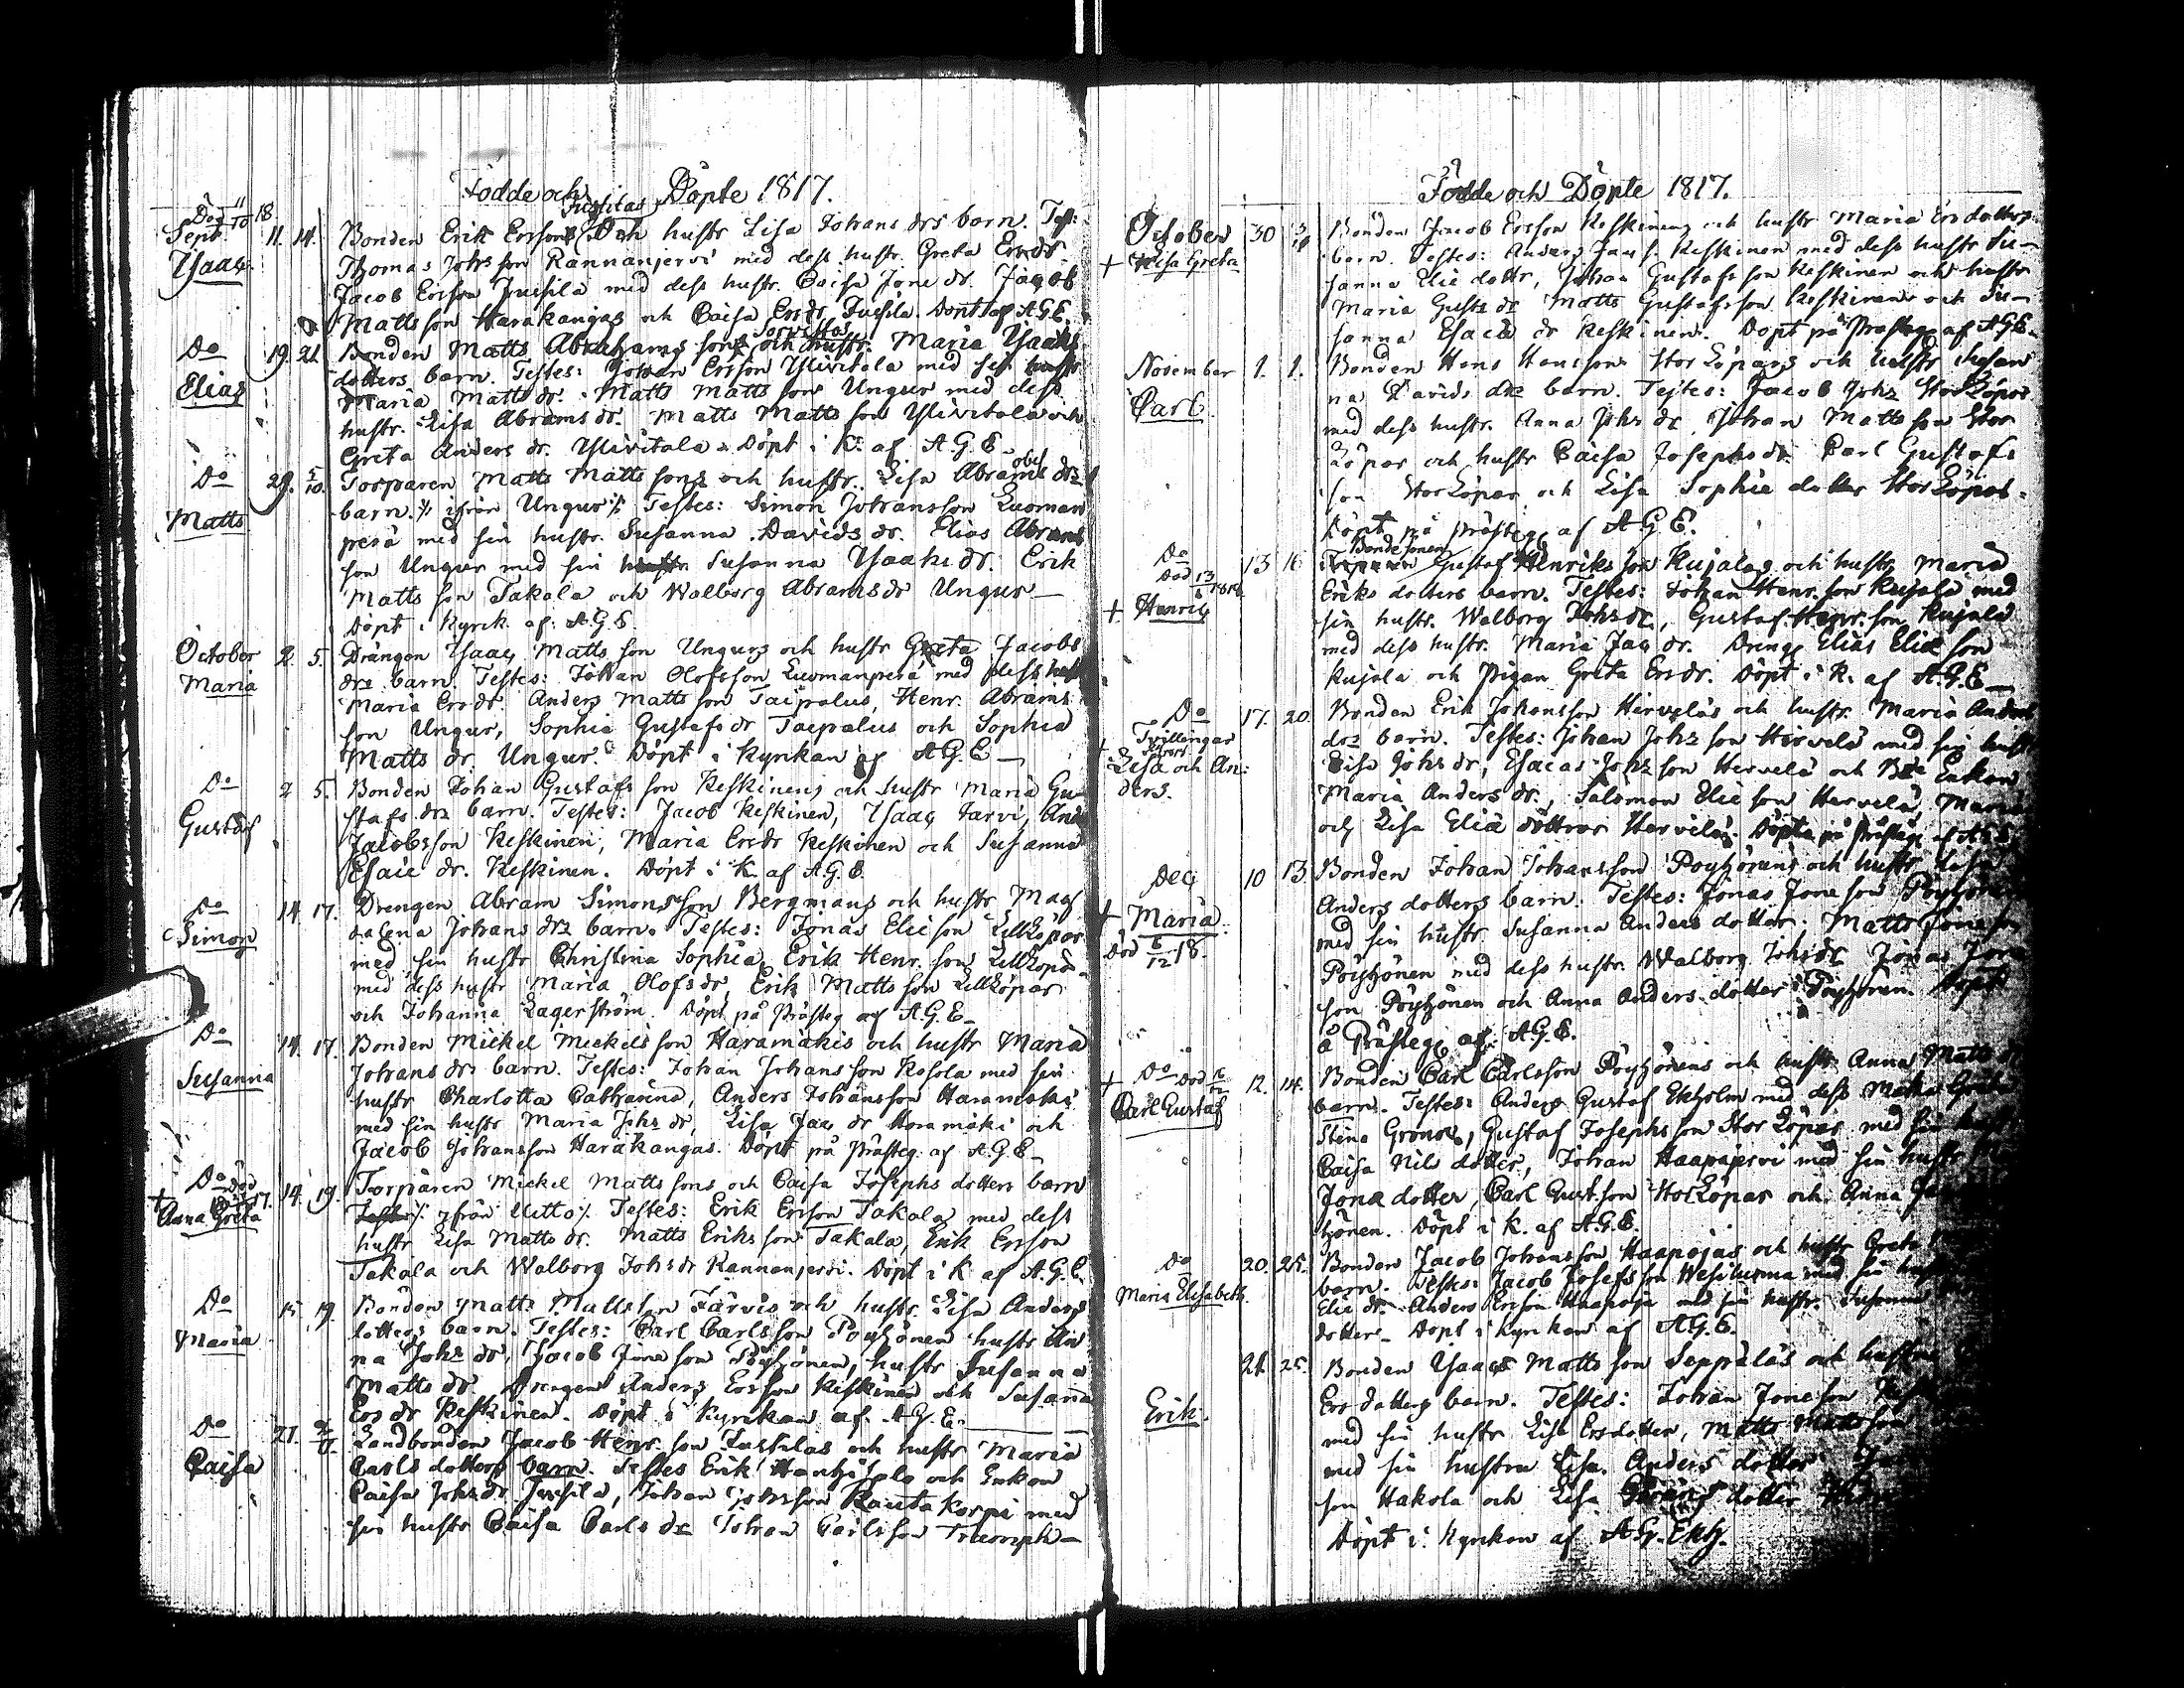 Födde och Döpte 1817.
Död 11/10 18.
Sept. 11. 14. Bonden Erik Ersson Jussilas och hustr Lisa Johans drs barn. Test:
Ysaac Thomas Johs son Kannanjervi med dess hustr. Greta Ersdr.
Jacob Ersson Jussila med dess hustr. Caisa Jone dr. Jacob
Mattsson Harakangas och Caisa Ers dr Jussila. Döpt af AGE.
Do 19. 21. Bonden Matts Abrahams sons och hustr. Maria Ysaaks
Elias dotters barn. Testes: Johan Ersson Ylivitala med sin hustr
Maria Matts dr. Matts Matts son Ungur med dess
hustr. Lisa Abrams dr. Matts Matts son Ylivitala och
Greta Anders dr. Ylivitala. Döpt i K. af A.G.E.
Do 29. 5/10. Torparen Matts Matts sons och hustr. Lisa Abrams drs
Matts barn. % ifrån Ungur % Testes: Simon Johansson Luoman
perä med sin hustr. Susanna Davids dr. Elias Abrams
son Ungur med sin hustr Susanna Ysaaks dr. Erik
Matts son Takala och Walborg Abrams dr Ungur
Döpt i Kyrk. af A.G.E.
October 2. 5. Drängen Ysaac Matts son Ungurs och hustr Greta Jacobs
Maria drs barn. Testes: Johan Olofsson Luomanperä med dess hust
Maria Ers dr. Anders Matts son Taipalus, Henr. Abrams
son Ungur, Sophia Gustafs dr Taipalus och Sophia
Matts dr. Ungur. Döpt i Kyrkan af A.G.E
Do 2 5. Bonden Johan Gustafs son Keskinens och hustr Maria Gu-
Gustaf stafs drs barn. Testes: Jacob Keskinen, Ysaac Jarvi, And
Jacobsson Keskinen, Maria Ersdr Keskinen och Susanna
Esaie dr. Keskinen. Döpt i K. af A.G.E.
Do 14. 17. Drengen Abram Simonsson Bergmans och hustr Mag
Simon dalena Johans drs barn. Testes: Jonas Elie son Lillköpar
med sin hustr Christina Sophia, Erik Henr. son Lillköpar
med dess hustr Maria Olofs dr, Erik Matts son Lillköpar
och Johanna Lagerström. Döpt på Prästeg af A.G.E
Do 14. 17. Bonden Mickel Mickels son Haramäkis och hustr Maria
Susanna Johans drs barn. Testes: Johan Johansson Kosola med sin
hustr Charlotta Catharina, Anders Johansson Haramäki
med sin hustr Maria Johs dr, Lisa Jac dr Haramäki och
Jacob Johansson Harakangas. Döpt på Prästeg. af A.G.E
Do Död 17.
+ Anna Greta 14. 19. Torparen Mickel Matts sons och Caisa Josephs dotters barn
% ifrån Uitto % Testes: Erik Ersson Takala med dess
hustr Lisa Matts dr. Matts Eriks son Takala, Erik Ersson
Takala och Walborg Johs dr Kannanjervi. Döpt i K af A.G.E.
Do 15. 19. Bonden Matts Mattsson Järvis och hustr. Lisa Anders
Maria dotters barn. Testes: Carl Carlsson Pöyhönen hustr An
na Johs dr, Jacob Jone son Pöyhönen, hustr Susanna
Matts dr. Drengen Anders Ersson Keskinen och Susanna
Ers dr Keskinen. Döpt i Kyrkan af A.G.E.
Do 21. Landbonden Jacob Henr. son Jussilas och hustr Maria
Caisa Carls dotters barn. Testes Erik och Enkan
Caisa Johs dr Jussila, Johan Johsson Rautakorpi med
sin hustr Caisa Carls dr Johan Carlsson Triumph
Födde och Döpte 1817.
October 30 Bonden Jacob Ersson Keskinens och hustr Maria Ers dotters
+ Caisa Greta barn. Testes: Anders Jac s. Keskinen med dess hustr Su-
sanna Elie dottr, Johan Gustafs son Keskinen och hustr
Maria Gusts dr Matts Gustafsson Keskinen och Su-
sanna Esaie dr Keskinen. Döpt på Prästeg. af AGE.
November 1. 1. Bonden Hans Hansson Storköpars och hustr Susan
Carl na Davids drs barn. Testes: Jacob Johs Storköpar
med dess hustr. Anna Johs dr Johan Matts son Stor
köpar och hustr Caisa Josephs dr. Carl Gustafs
son Storköpar och Lisa Sophia dotter Storköpar.
Döpt på prästeg af A.G.E.
Do 13 16 Bondesonen Gustaf Henriks son Kujalas och hustr Maria
Död 13/6 1818
+ Henric Eriks dotters barn. Testes: Johan Henr. son Kujala med
sin hustr. Walborg Johs dr, Gustaf Henr. son Kujala
med dess hustr. Maria Jac dr. Dreng Elias Elie son
Kujala och Pigan Greta Ers dr. Döpt i K. af A.G.E
Do 17. 20. Bonden Erik Johansson Herveläs och hustr. Maria Anders
+ Tvillingar drs barn. Testes: Johan Johs son Hervelä med sin hustr
Lisa och An- Lisa Johs dr, Esaias Johs son Hervelä och Enkan
ders. Maria Anders dr. Salomon Elie son Hervelä, Maria
och Lisa Eliæ döttrar Hervelä. Döpte på Prästeg af A.G.E.
Dec 10 13 Bonden Johan Johansson Pöyhönens och hustr Lisa
+ Maria. Anders dotters barn. Testes: Jonas Jone son Pöyhönen
Död 6/12 18. med sin hustr Susanna Anders dotter, Matts Jone son
Pöyhönen med dess hustr Walborg Johs dr Jonas Jone
son Pöyhönen och Anna Anders dotter Pöyhönen. Döpt
å Prästeg af A.G.E.
+ Do Död 12. 14. Bonden Carl Carlsson Pöyhönens och hustr Anna Matts
Carl Gustaf barn. Testes: Anders Gustaf Ekholm med dess Maka Greta
Stina Gronow, Gustaf Josephs son Storköpar med sin
Caisa Nils dotter, Johan Haapajervi med sin hustr
Jona dotter, Carl Gust. son Storköpar och Anna
hönen. Döpt i K. af A.G.E.
Do 20. 25. Bonden Jacob Johansson Haapojas och hustr Greta
Maria Elisabeth. barn. Testes: Jacob Josefs son Wesiluoma med sin
Elie dr. Anders Ersson Haapoja med sin hustr. Susanna
dotter. Döpt i Kyrkan af A.G.E.
21. 25. Bonden Ysaac Matts son Seppäläs och hustrus
Erik. Ers dotters barn. Testes: Johan Jone son
med sin hustr Lisa Ersdotter, Matts Matts son
med sin hustru Lisa Anders dotter
son Hakola och Lisa dotter
Döpt i Kyrkan af A.G. Ekh.